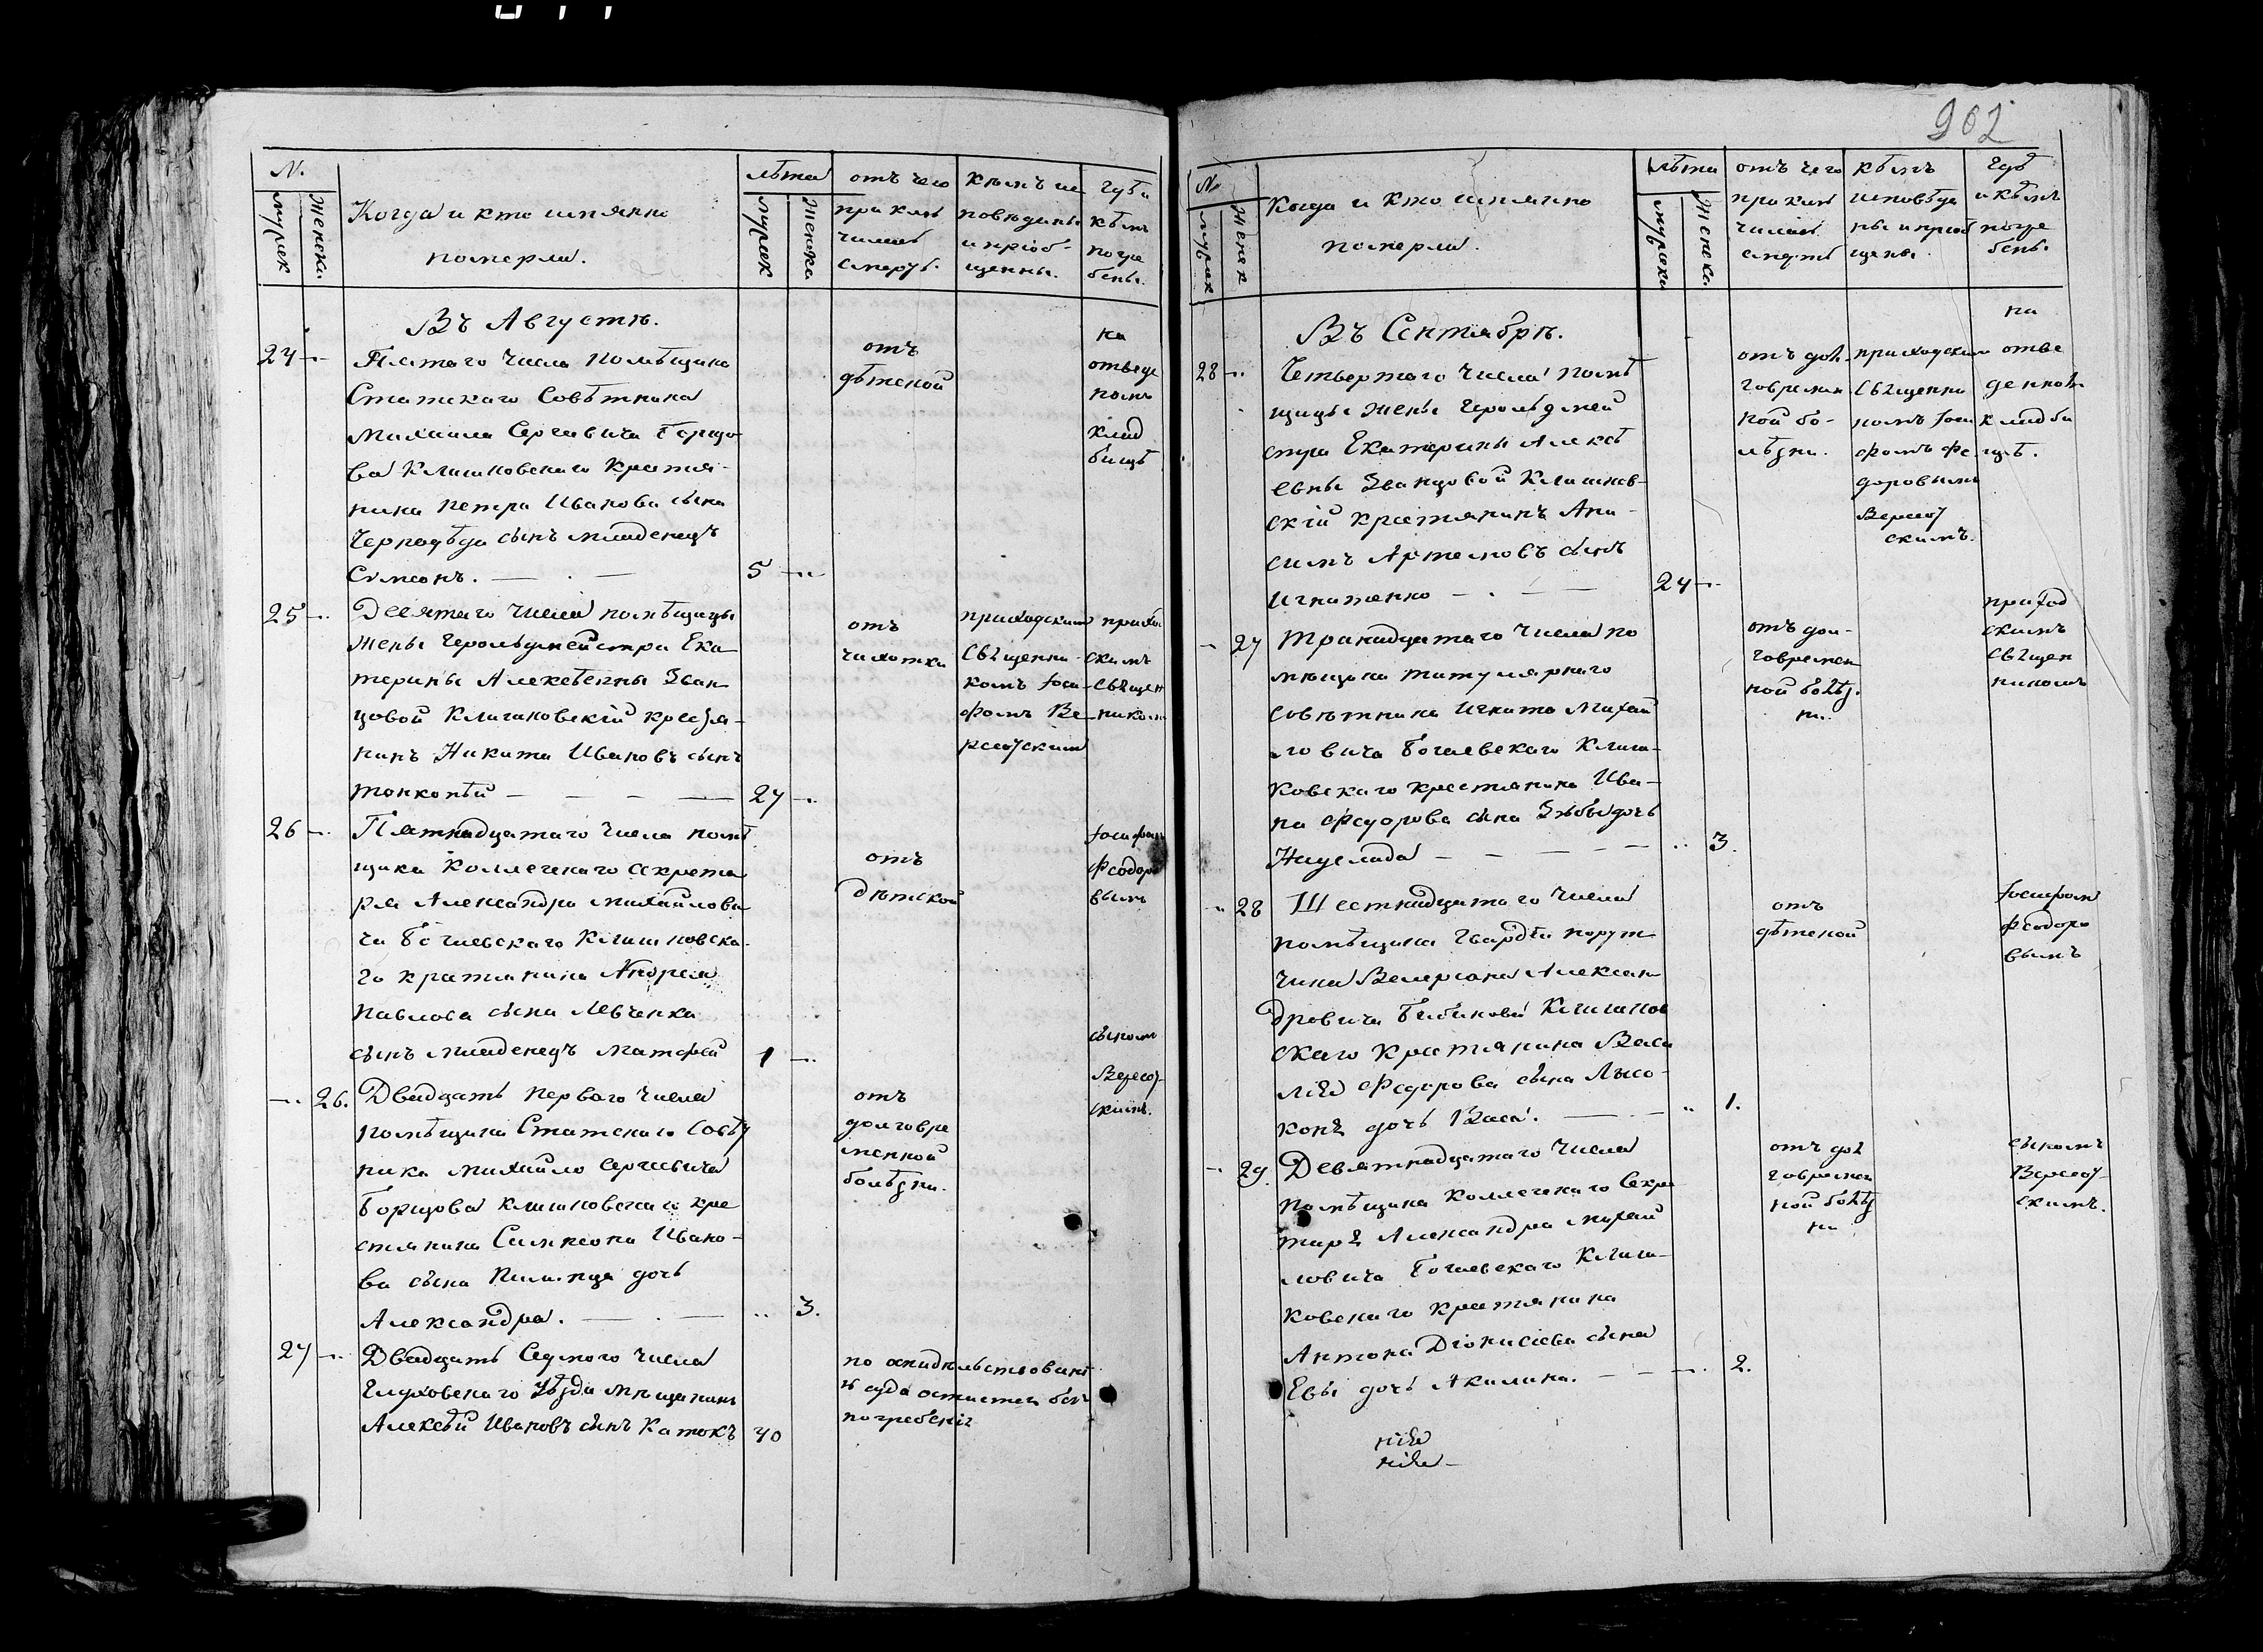 902
N.
мужск
женска.
Когда и кто имянно
померли.
лѣта
мужск
женска
отъ чего
приклю
чилась
смерть.
кѣмъ ис
повѣданы
и приоб-
щенны.
гдѣ и
кѣмъ
погре
бены.
Въ Августѣ.
24
Пятаго числа помѣщика
Статскаго Совѣтника
Михаила Сергѣевича Борщо-
ва Клишковскаго крестья-
нина Петра Иванова сына
сынъ младенецъ
Симеонъ.
5
отъ
дѣтской
на
отведе
номъ
клад
бищѣ
25
Десятаго числа помѣщицы
жены Герольдмейстра Ека
терины Алексѣевны Зван
цовой Клишковскій крестья-
нинъ Никита Ивановъ сынъ
тонконѣй
24
отъ
чахотки
приходскимъ
Священни-
комъ Іоси-
фомъ Ве-
ресоцкимъ
прихо
скимъ
Священ
никомъ
26
Пятнадцатаго числа помѣ
щика Коллегскаго Секрета
ря Александра Михайлови
ча Богаевскаго Клишковска-
го крестьянина Андрея
Павлова сына Левченка
сынъ младенецъ Матфей
1
отъ
дѣтской
Іосифом
Феодоро
вымъ
26.
Двадцать перваго числа
помѣщика Статскаго Совѣт
ника Михайло Сергѣевича
Борщова Клишковскаго кре
стьянина Симеона Ивано-
ва сына дочь
Александра.
3.
отъ
долговре
менной
болѣзни.
сыномъ
Вересоц-
скимъ.
27
Двадцать Седмого числа
Глуховскаго Уѣзда мѣщанинъ
Алексѣй Ивановъ сынъ Катокъ
40
по освидѣльствовані
и суда остается безъ
погребенія
№
мужск
женск
Когда и кто имянно
померли.
лѣта
мужска
женска.
отъ чего
приклю
чилась
смерть
кѣмъ
исповѣда
ны и приоб
щены.
гдѣ
и кѣмъ
погре
бены.
Въ Сентябрѣ.
28
Четвертаго числа помѣ
щицы жены Герольдмей
стра Екатерины Алексѣ
евны Званцовой Клишков-
скій крестьянинъ Ани-
симъ Артемовъ сынъ
Игнатенко
24
отъ дол-
говремен
ной бо-
лѣзни.
приходскимъ
Священни
комъ Іоси
фомъ Фе
доровымъ
Вересоц
скимъ.
на
отве
денномъ
кладби
щѣ.
27
Тринадцатаго числа по
мѣщика титулярнаго
Совѣтника Игната Михай
ловича Богаевскаго Клиш-
ковскаго крестьянина Ива-
на Федорова сына дочь
Нацелида
3.
отъ дол-
говремен
ной болѣз.
ни.
приход
скимъ
Священ
никомъ
28
Шестнадцатаго числа
помѣщика Гвардіи порут
чика Валеріана Алексан
дровича Бибикова Клишков
скаго крестьянина Васи
лія Федорова сына Лысо-
коня дочь Васа.
1.
отъ
дѣтской
Іосифом
Феодоро
вымъ
29.
Девятнадцатаго числа
помѣщика Коллегскаго Секре
таря Александра Михай
ловича Богаевскаго Клиш-
ковскаго крестьянина
Антона Діонисіева сына
Евы дочь Акилина.
2.
отъ дол
говремен
ной болѣз
ни
сыномъ
Вересоц-
скимъ.